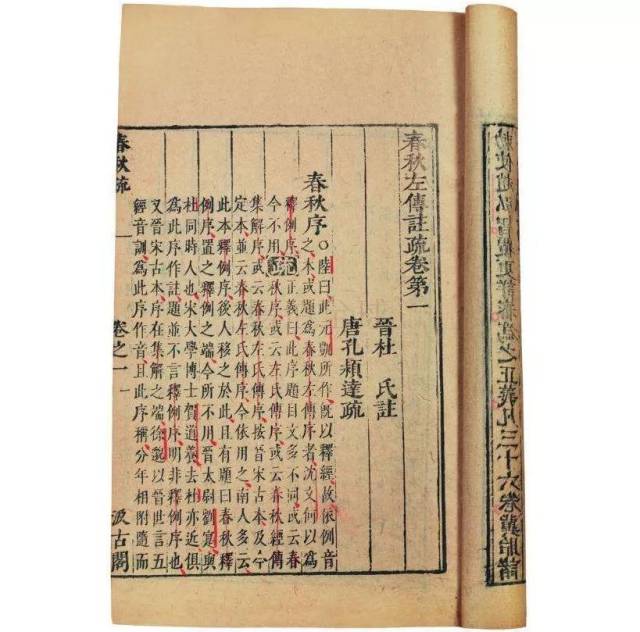 之正義凡三十六卷冀貽諸
春秋左傳註疏卷第一
晉杜氏註
唐孔穎達疏
春秋序○陸曰此元凱所作既以釋經故依例音
之本或題為春秋左傳序者沈文何以為
釋例序
今不用疏正義曰此序題目文多不同或云春
秋序或云左氏傳序或云春秋經傳
集解序或云春秋左氏傳序按晉宋古本及今
定本並云春秋左氏傳序今依用之南人多云
此本釋例序後人移之於此且有題曰春秋釋
例序置之釋例之端今所不用晉太尉劉寔與
杜同時人也宋大學博士賀道養去杜亦近俱
為此序作註題並不言釋例序明非釋例序也
又晉宋古本序在集解之端徐邈以晉世言五
經音訓為此序作音且此序稱分年相附隨而
春秋疏 卷之一 一 汲古閣